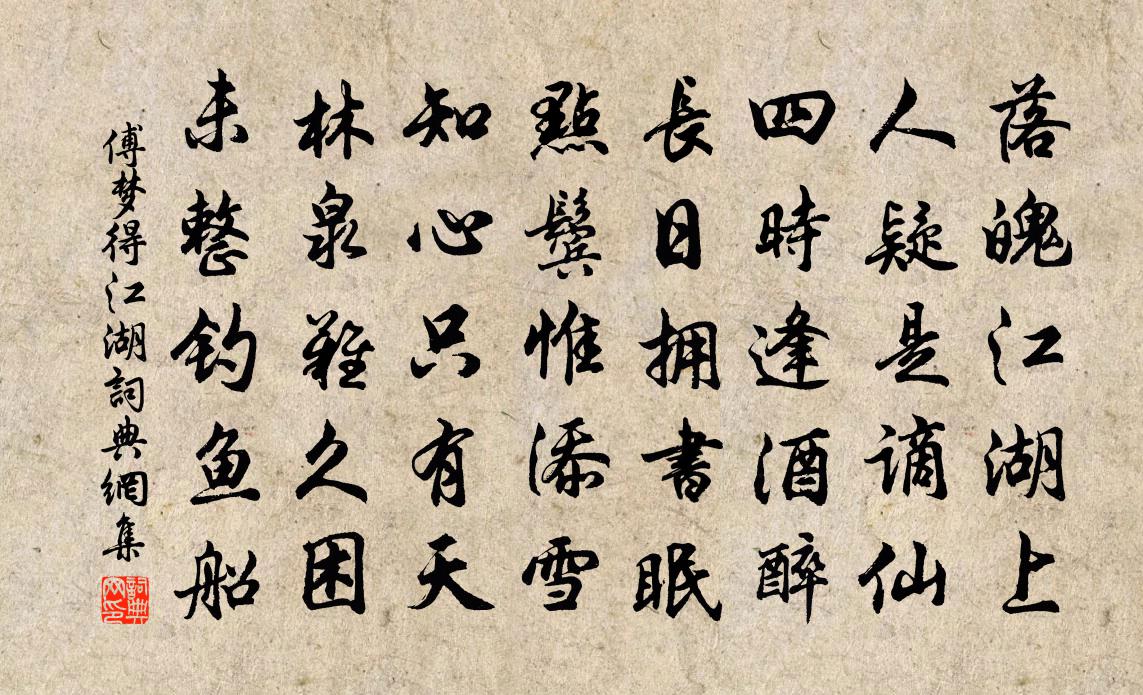 落魄江湖上
人疑是謫仙
四時逢酒醉
長日拥書眠
點鬓惟添雪
知心只有天
林泉難久困
未整钓鱼船
傅梦得江湖詞典網集
詞典
网印